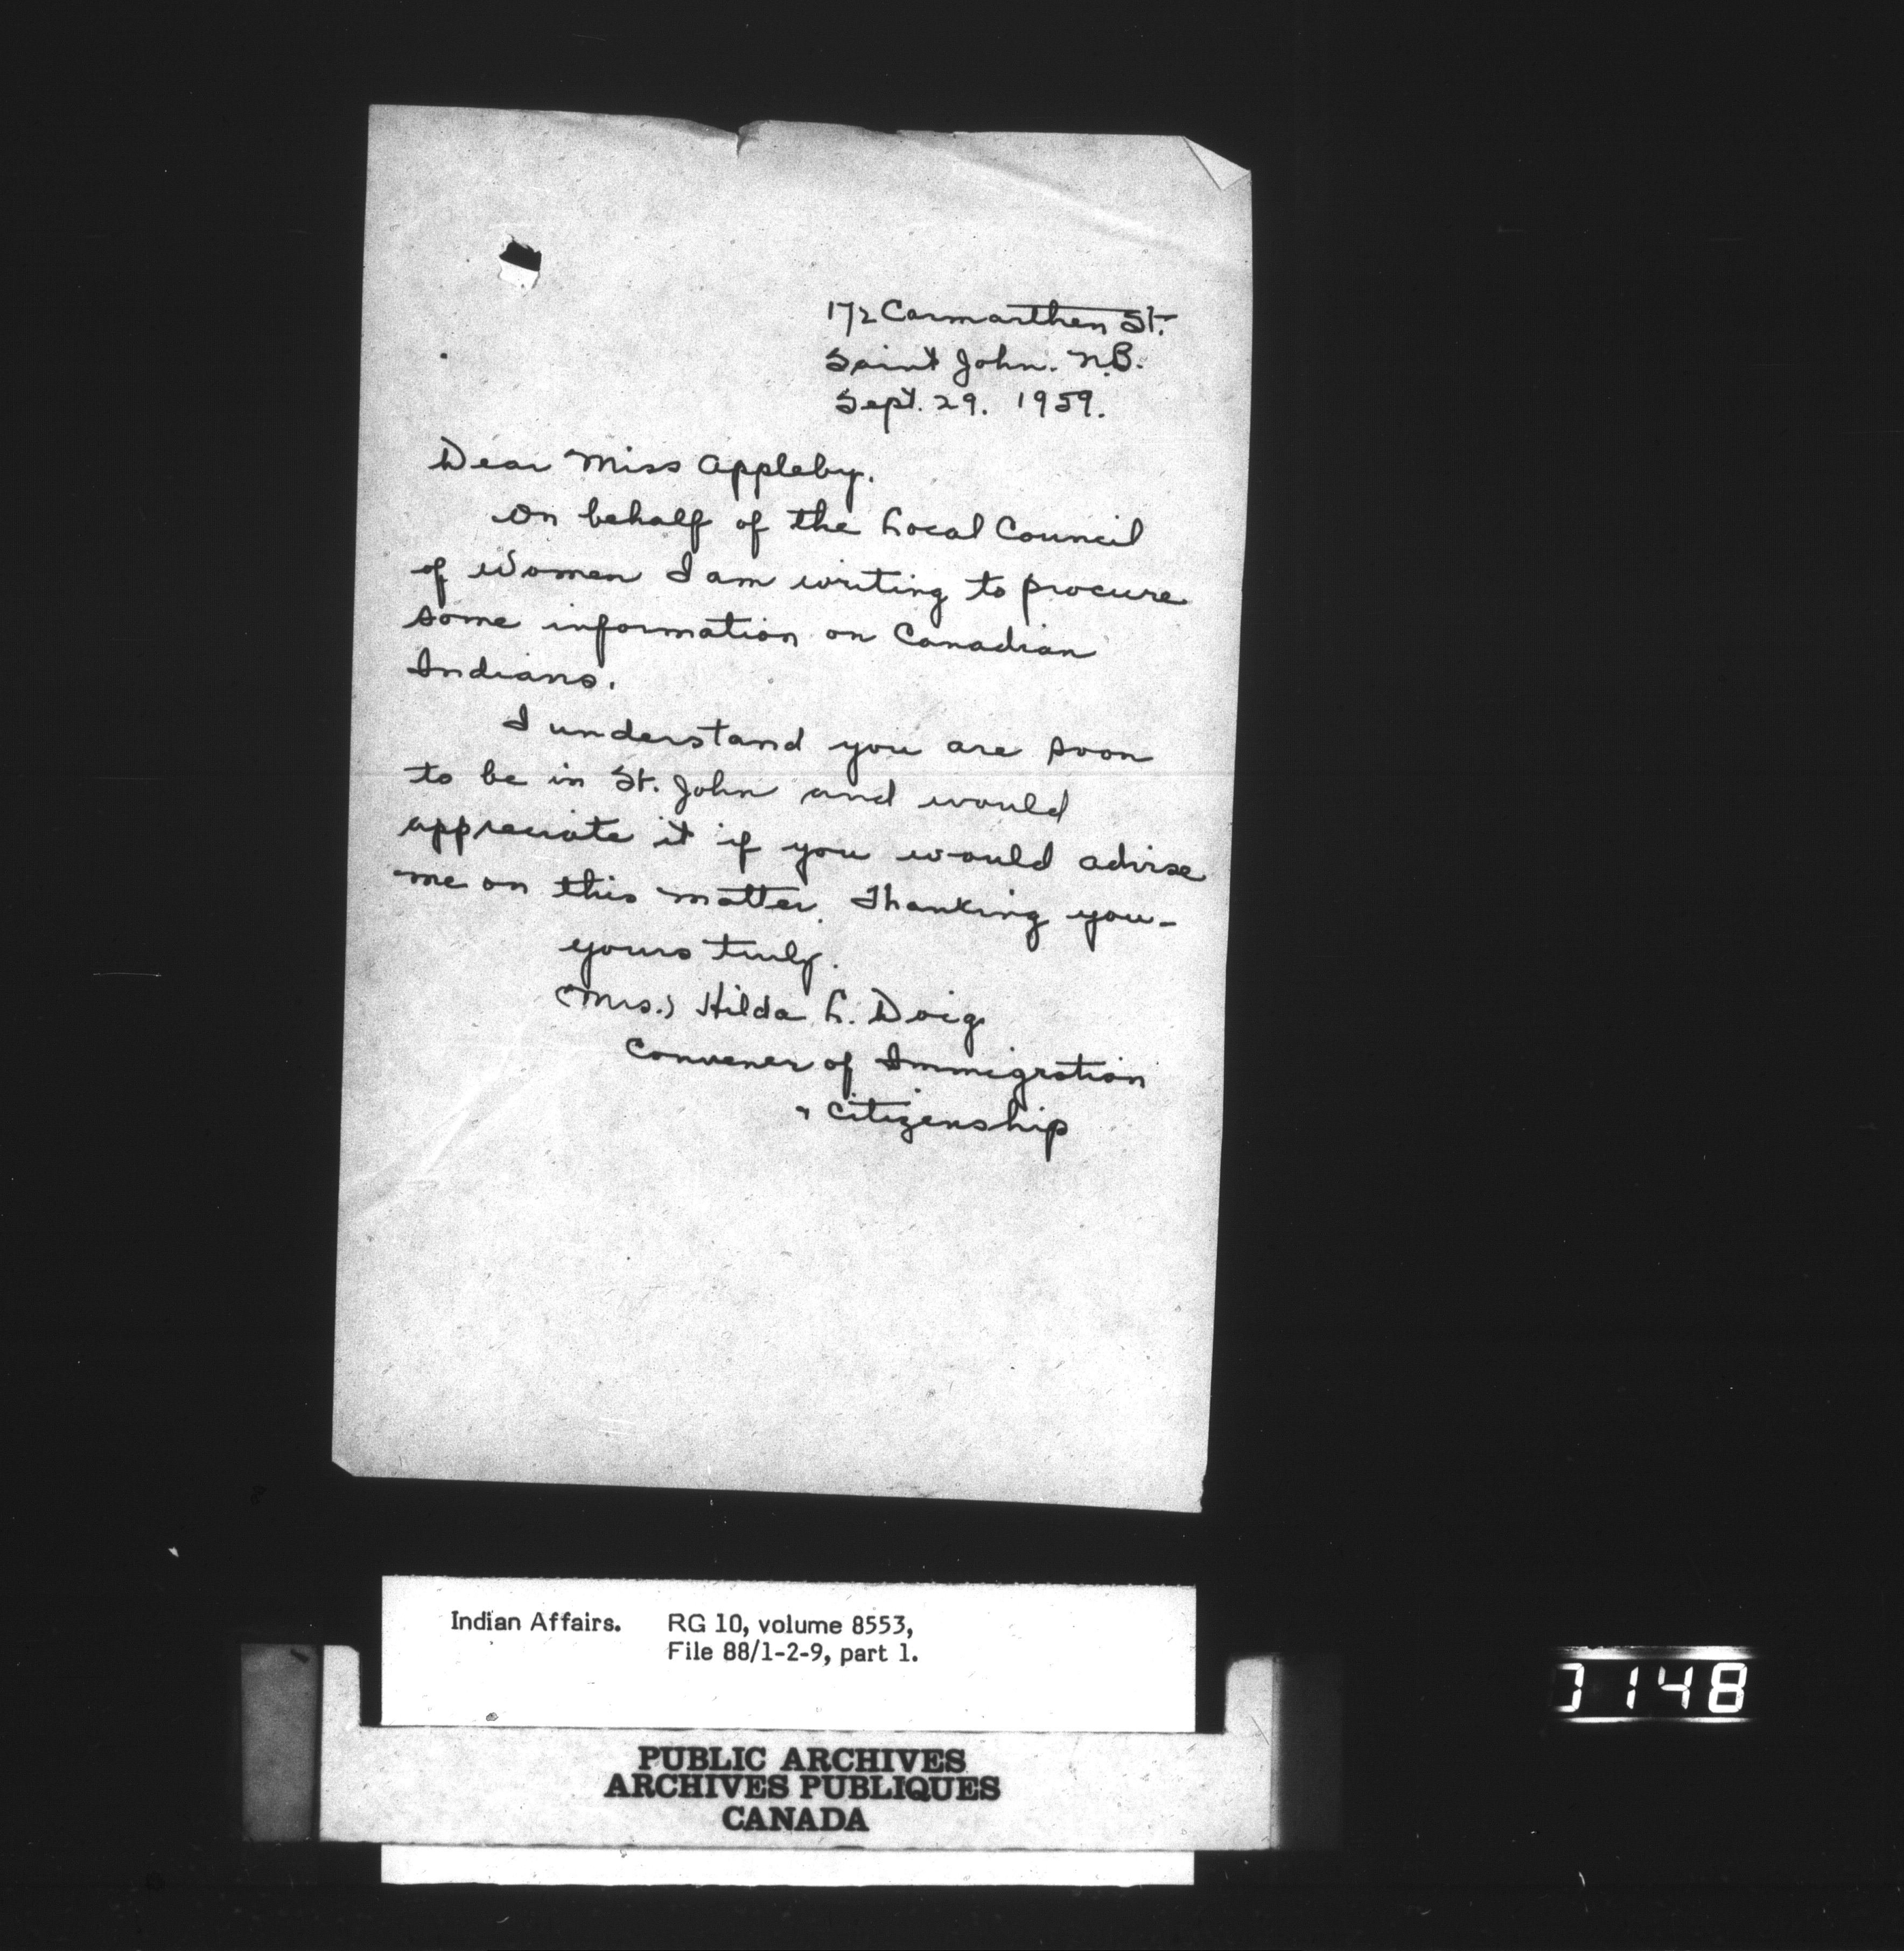 172 Carmarthen St.
Saint John. N.B.
Sept. 29. 1959.
Dear Miss Appleby.
On behalf of the Local Council
of Women I am writing to procure
some information on Canadian
Indians.
I understand you are soon
to be in St. John and would
appreciate it if you would advise
me on this matter. Thanking you-
yours truly.
(Mrs.) Hilda L. Doig
Convener of Immigration
& Citizenship
Indian Affairs. RG 10, volume 8553,
File 88/1-2-9, part 1.
PUBLIC ARCHIVES
ARCHIVES PUBLIQUES
CANADA
148